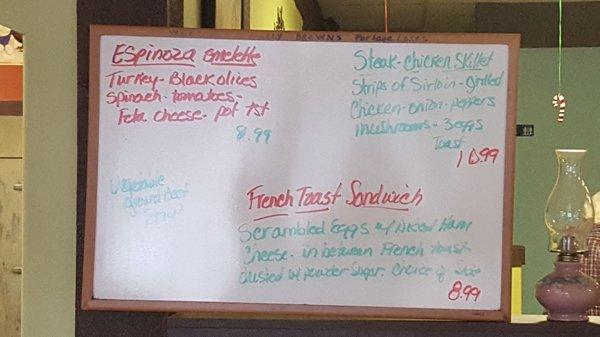 BROWNS Portage Lakes
Espinoza omelette
Turkey-Black olives
Spinach-tomatoes-
Feta cheese- pot tst
8.99
Steak-Chicken Skillet
Strips of Sirloin-grilled
Chicken-onion-peppers
mushrooms- 3 eggs
Toast
10.99
Vegetable
ground Beef
Soup
French Toast Sandwich
Scrambled Eggs w/ Diced Ham
Cheese- in between French toast
dusted w/ powder Sugar. Choice of side
8.99